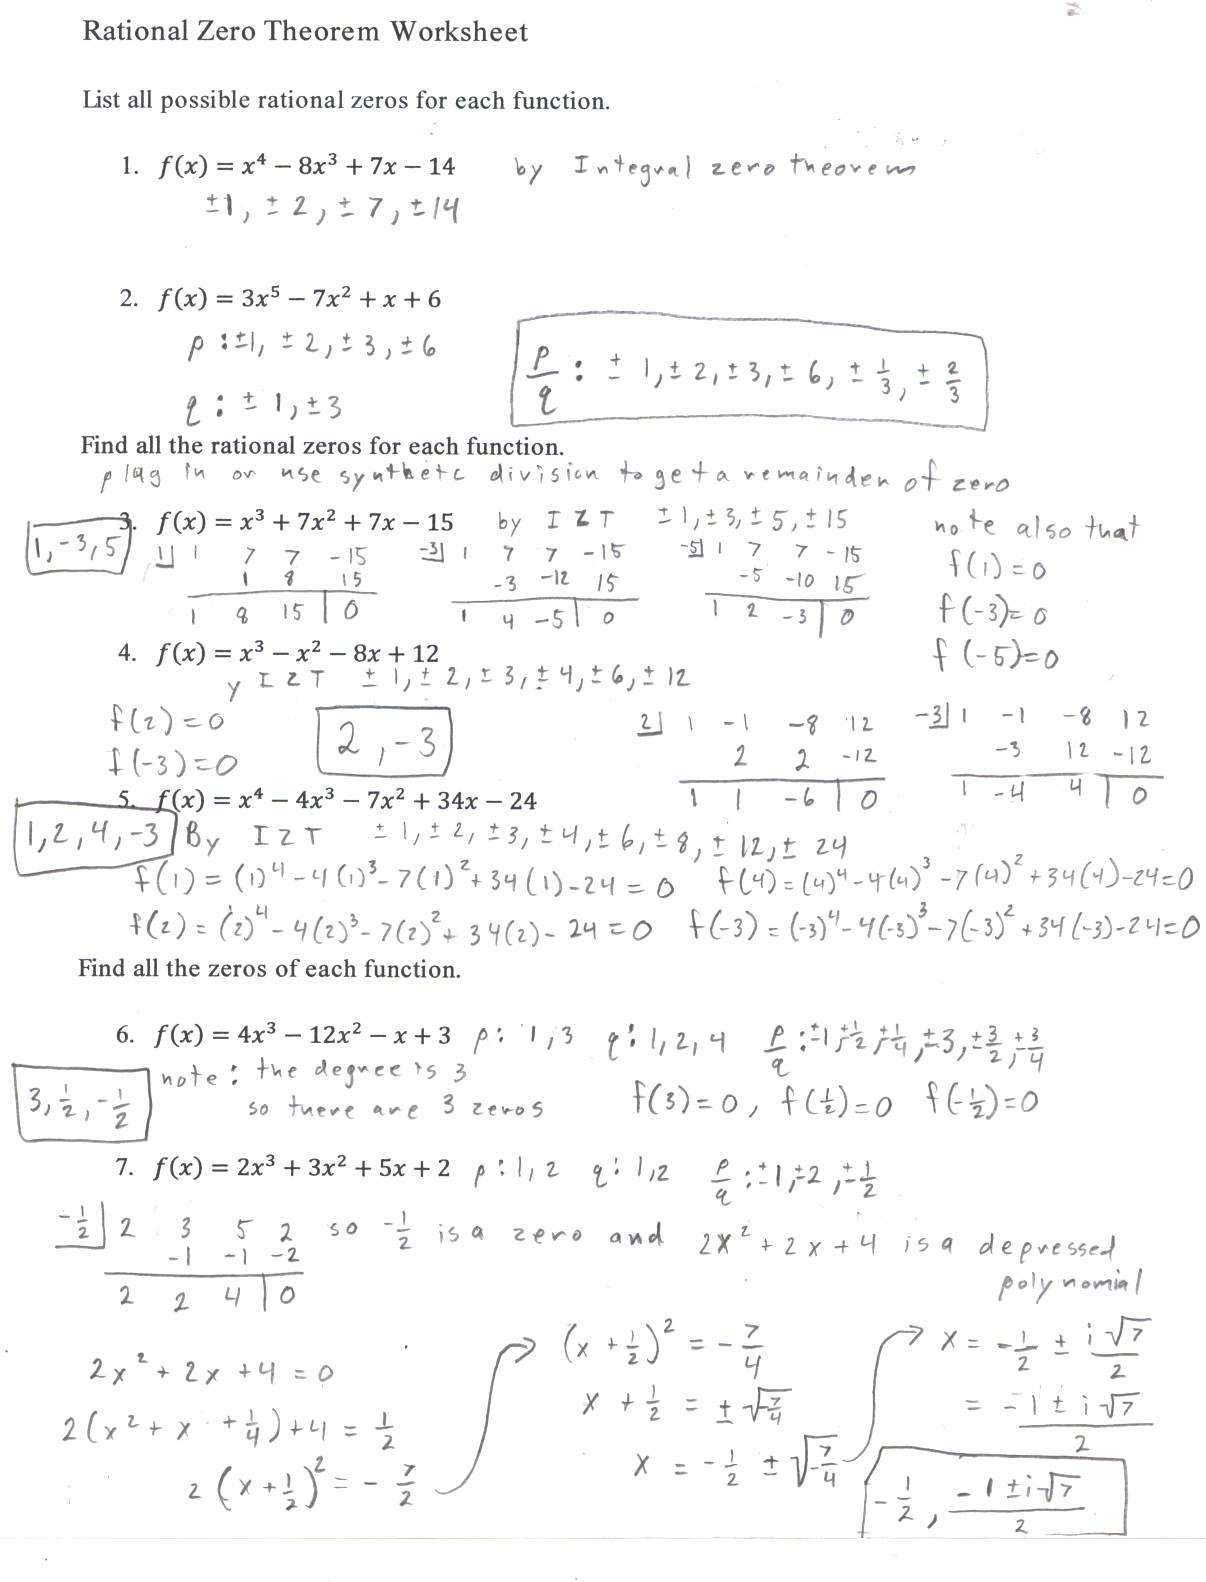 Rational Zero Theorem Worksheet
List all possible rational zeros for each function.
1. f(x) = x⁴ − 8x³ + 7x − 14 by Integral zero theorem
±1, ±2, ±7, ±14
2. f(x) = 3x⁵ − 7x² + x + 6
p : ±1, ±2, ±3, ±6
p/q : ±1, ±2, ±3, ±6, ±1/3, ±2/3
q : ±1, ±3
Find all the rational zeros for each function.
plug in or use synthetc division to get a remainder of zero
3. f(x) = x³ + 7x² + 7x − 15 by IZT ±1, ±3, ±5, ±15
1, -3, 5
note also that
f(1)=0
f(-3)=0
f(-5)=0
1| 1 7 7 -15
1 8 15
1 8 15 | 0
-3| 1 7 7 -15
-3 -12 15
1 4 -5 | 0
-5| 1 7 7 -15
-5 -10 15
1 2 -3 | 0
4. f(x) = x³ − x² − 8x + 12
y IZT ±1, ±2, ±3, ±4, ±6, ±12
f(2)=0
f(-3)=0
2, -3
2| 1 -1 -8 12
2 2 -12
1 1 -6 | 0
-3| 1 -1 -8 12
-3 12 -12
1 -4 4 | 0
5. f(x) = x⁴ − 4x³ − 7x² + 34x − 24
1, 2, 4, -3 By IZT ±1, ±2, ±3, ±4, ±6, ±8, ±12, ±24
f(1) = (1)⁴ - 4(1)³ - 7(1)² + 34(1) - 24 = 0 f(4) = (4)⁴ - 4(4)³ - 7(4)² + 34(4) - 24 = 0
f(2) = (2)⁴ - 4(2)³ - 7(2)² + 34(2) - 24 = 0 f(-3) = (-3)⁴ - 4(-3)³ - 7(-3)² + 34(-3) - 24 = 0
Find all the zeros of each function.
6. f(x) = 4x³ − 12x² − x + 3 p: 1, 3 q: 1, 2, 4 p/q : ±1, ±1/2, ±1/4, ±3, ±3/2, ±3/4
note: the degree is 3
so there are 3 zeros f(3)=0, f(1/2)=0 f(-1/2)=0
3, 1/2, -1/2
7. f(x) = 2x³ + 3x² + 5x + 2 p: 1, 2 q: 1, 2 p/q : ±1, ±2, ±1/2
-1/2| 2 3 5 2
-1 -1 -2
2 2 4 | 0
so -1/2 is a zero and 2x² + 2x + 4 is a depressed
polynomial
2x² + 2x + 4 = 0
2(x² + x + 1/4) + 4 = 1/2
2(x + 1/2)² = -7/2
(x + 1/2)² = -7/4
x + 1/2 = ±√-7/4
x = -1/2 ± √-7/4
x = -1/2 ± i√7/2
= -1 ± i√7/2
-1/2, -1 ± i√7/2